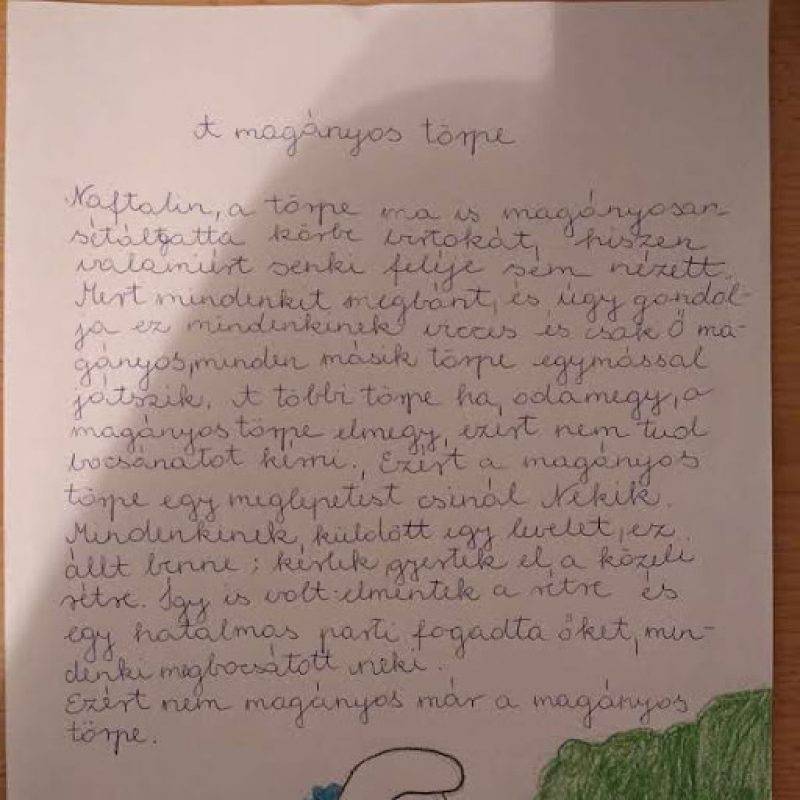 A magányos törpe
Naftalin, a törpe ma is magányosan
sétálgatta körbe birtokát, hiszen
valamiért senki feléje sem nézett.
Mert mindenkit megbánt, és úgy gondol-
ja ez mindenkinek vicces és csak Ő ma-
gányos, minden másik törpe egymással
játszik. A többi törpe ha, odamegy, a
magányos törpe elmegy, ezért nem tud
bocsánatot kérni. Ezért a magányos
törpe egy meglepetést csinál Nekik.
Mindenkinek küldött egy levelet, ez
állt benne; kérlek gyertek el a közeli
rétre. Így is volt elmentek a rétre és
egy hatalmas parti fogadta őket, min-
denki megbocsátott neki.
Ezért nem magányos már a magányos
törpe.